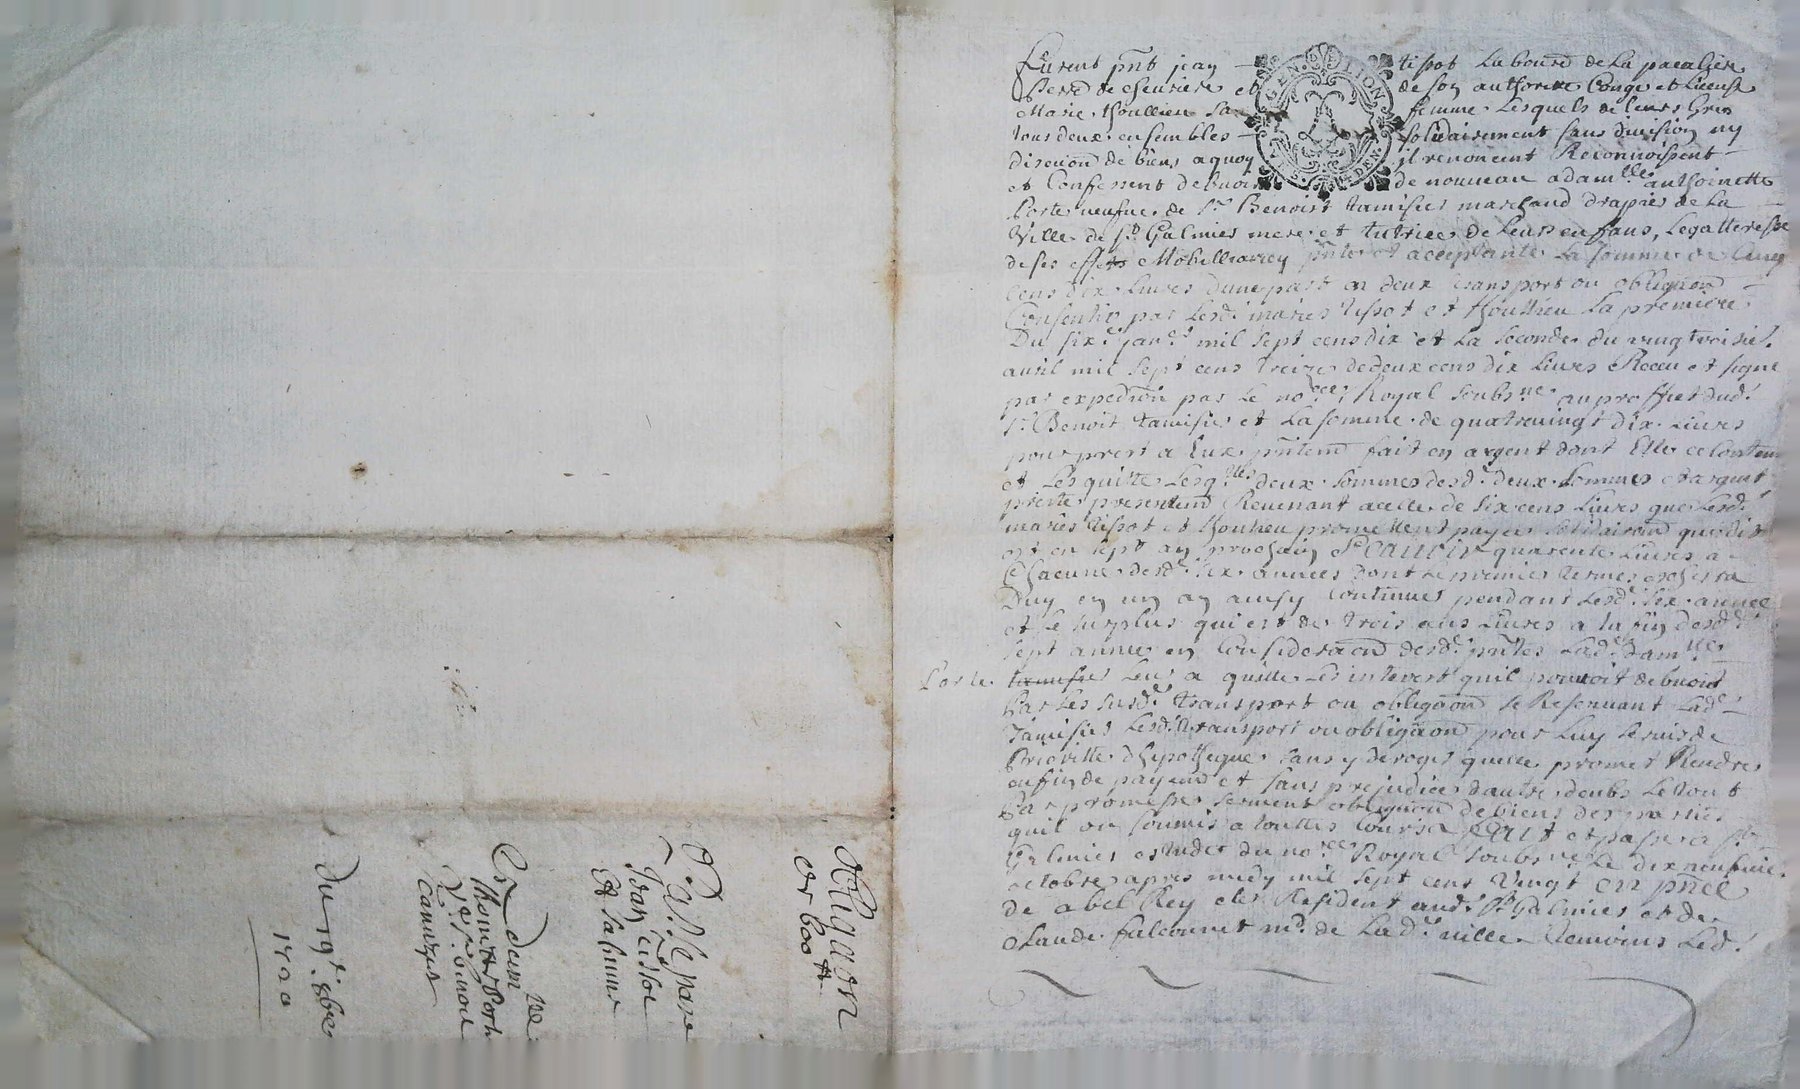 Furent pnt jean tissot laboure de la pacalier
de chevriere et de son authorite Conge et license
Marie thoullieu sa femme. Lesquels de leurs Gres
tous deux ensembles solidairement sans division ny
discuon de biens aquoy il renoncent Reconnoissent
et Confessent debvoir de nouveau a damlle anthoinette
Porte neufve de Sr Benoist tamisier marchand drapier de La
Ville de St Galmier mere et tutrice de Leurs enfans, Legatteresse
de ses effets Mobilliaires pnte et acceptante La somme de Cinq
Cens dix Livres dune part en deux transport ou obligaon
Consentis par Lesd. maries tissot et thoullieu La premiere
Du six. janr. mil sept cens dix et La seconde du vingt troisie.
avril mil sept cens treize de deux cens dix Livres Receu et signe
par expedion par Le nore Royal soubsne au proffiet dud.
Sr Benoit tamisier et La somme de quatrevingt dix Livres
pour prest a Eux pntem fait en argent dont Elle ce Contente
et Les quitte Lesqlles deux sommes desd. deux sommes et argent
preste presentem Revenant acelle de six cens Livres que Lesd.
maries tissot et thoulieu promettent payer solidairem que dit
est en sept an prochain SCAUOIR quarente Livres a
Chacune desd. six annees dont Le premier terme
Duy en un an ausy Continuer pendant Lesd. six annee
et Le surplus qui est de trois cens Livres a la fin desd.
sept annee en Consideraon desd. pntes Lad. damlle
Porte Leur a quitte Les interest quil pouvoit debvoir
Par Les susd. transport ou obligaon se Reservant Lad.
Tamisier Lesd. transport ou obligaon pour Luy servir de
Prioritte dhipotheque sans y deroger quelle promet Rendre
enfin de payem et sans prejudice dautre deubs Le tout
Par promesse serment obligaon de biens des parties
quil on soumis a touttes Cours FAIT et passe a St
Galmier estude du nore Royal soubsne Le dix neufvie.
octobre apres midy mil sept cens Vingt EN pnce
de abel Rey clerc Resident aud. St Galmier et de
Claude falconnet md. de Lad. ville temoins Led.
Obligaon
de 600 tt
Jean tissot
Et sa femme
Et dam lle
thoinette Porte
Vve Sr benoit
tamizier
Du 19e. 8bre
1720